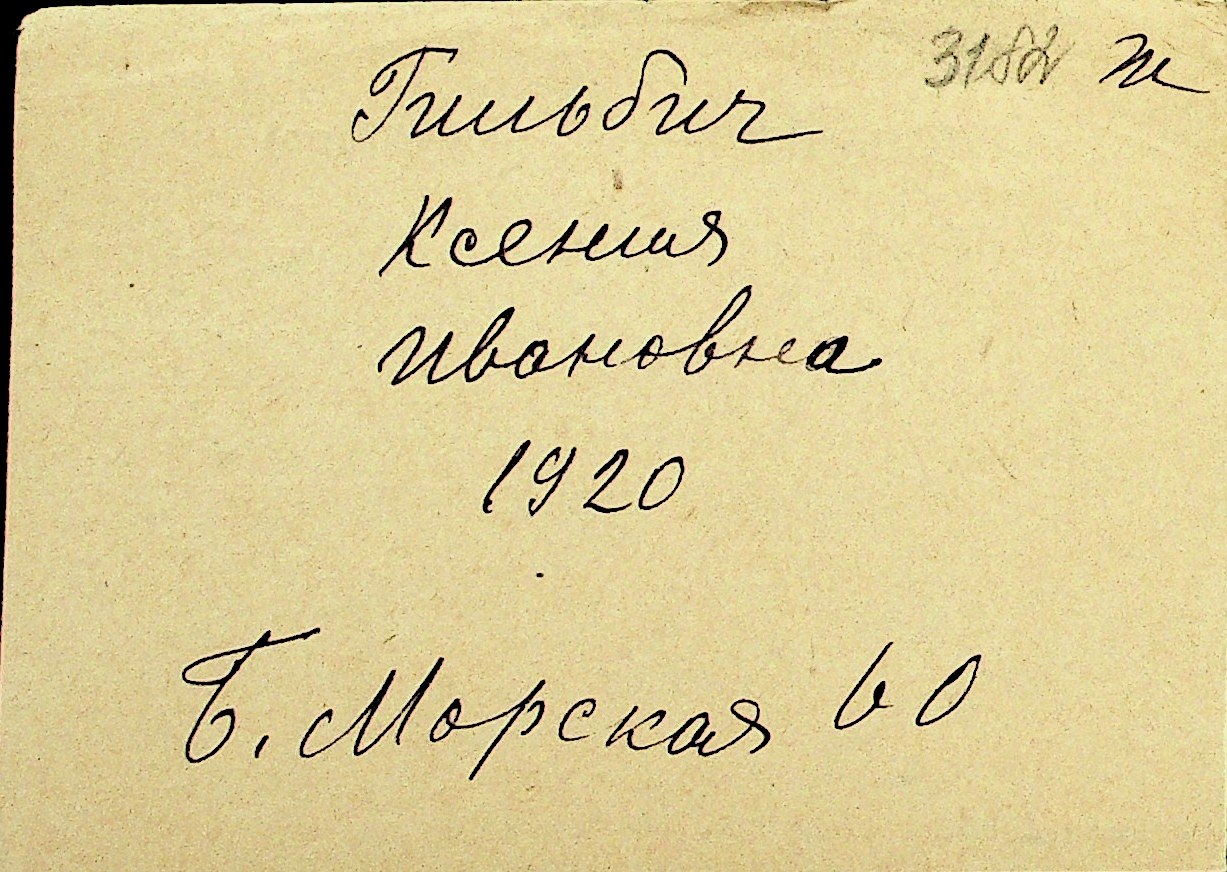 3182 ж
Гильбич
Ксения
Ивановна
1920
Б. Морская 60